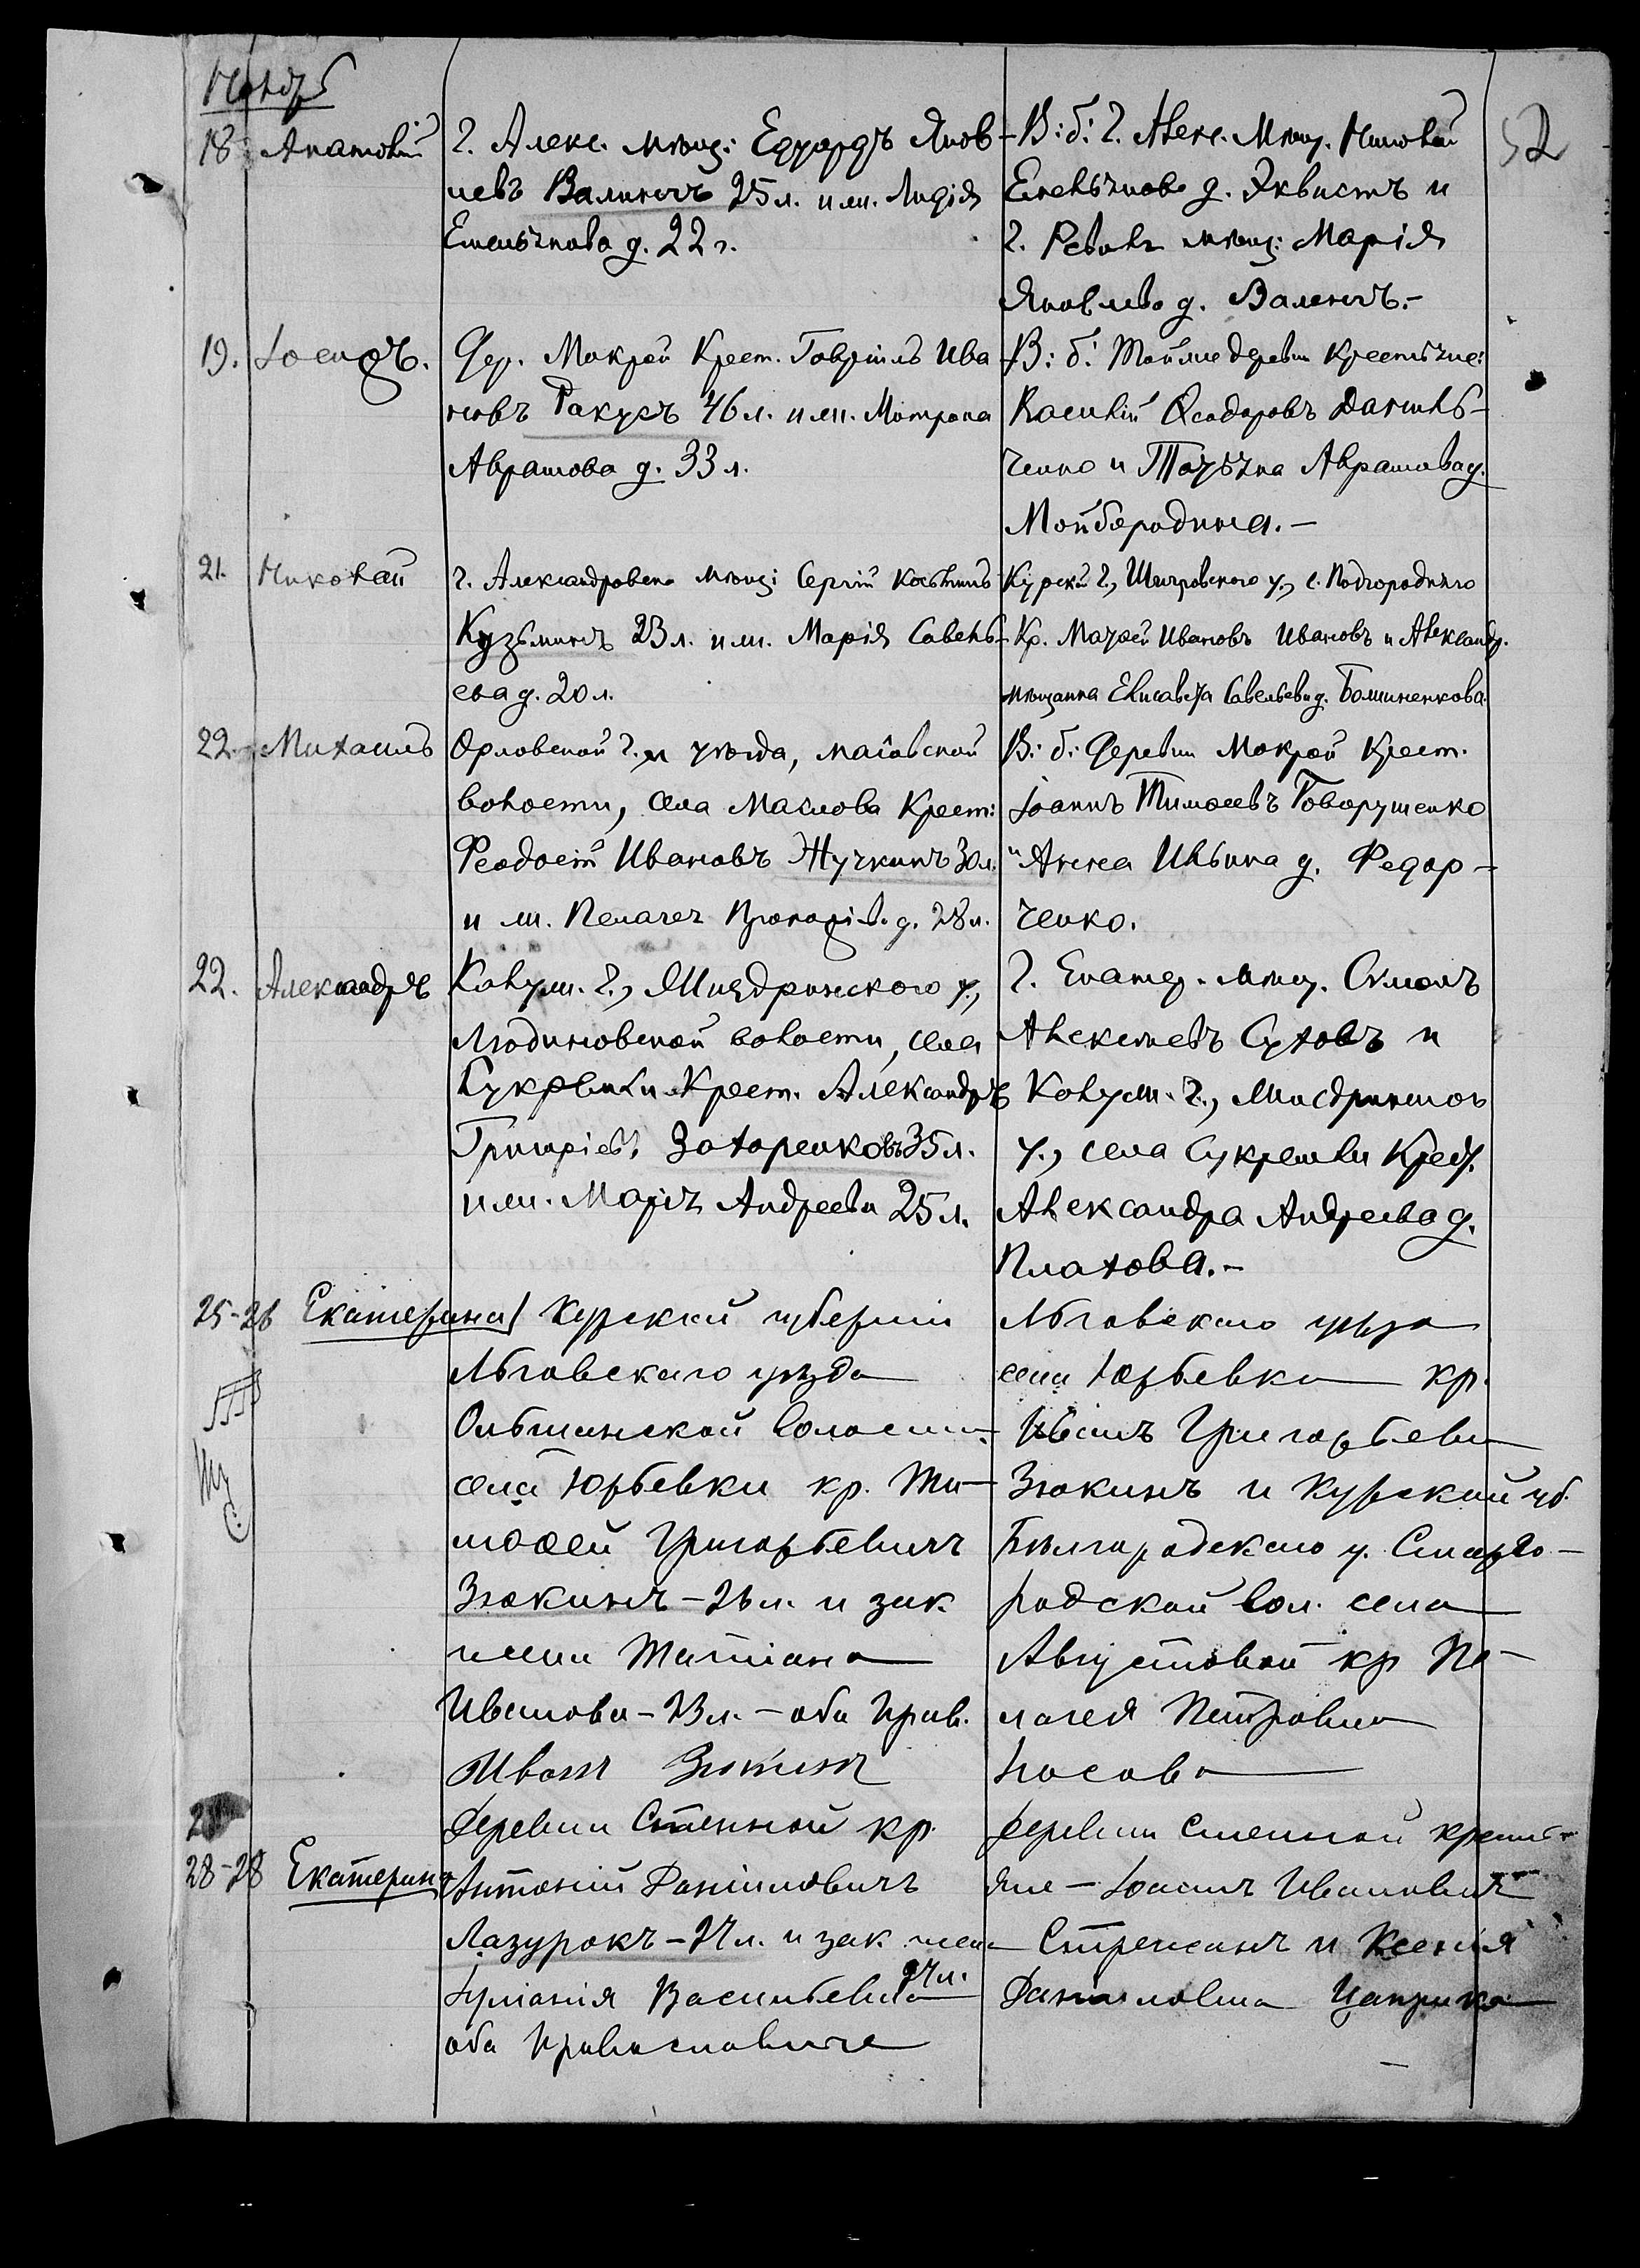 Ноябрь
52
18. Анатолій
г. Алекс. мѣщ: Едуардъ Яков
левъ Валиничъ 25 л. и ж. Лидія
Емельянова д. 22 г.
В: б: г. Алекс. Мѣщ. Николай
Емельянова д. Эквистъ и
г. Ревель мѣщ: Марія
Яковлева д. Валеничъ.-
19. Іосифъ.
Дер. Мокрой Крест. Гавріилъ Ива
новъ Ракусъ 46 л. и ж. Матрона
Аврамова д. 33 л.
В: б: Той же деревни Крестьяне:
Василій Ѳеодоровъ Даниль-
ченко и Татьяна Аврамова д.
Майбородина.-
21. Николай
г. Александровска мѣщ: Сергій
Кузьминъ 23 л. и ж. Марія Савель-
ева д. 20 л.
Курской г., Щигровскаго у., с. Подгородняго
Кр. Матѳей Ивановъ Ивановъ и Александр.
мѣщанка Елисавета Савельева д.
22. Михаилъ
Орловской г. и уѣзда,
волости, села Маслова Крест:
Феодосій Ивановъ Жучкинъ 30 л.
и ж. Пелагея д. 28 л.
В: б: Деревни Мокрой Крест.
Іоаннъ Тимоѳеевъ Говорущенко
и Анна Ильина д. Федор-
ченко.
22. Александръ
Калуж. г., Жиздринского у.,
Людиновской волости, села
Сукремли Крест. Александръ
Григоріевъ Захаренковъ 35 л.
и ж. Марія Андреева 25 л.
г. Екатер. мѣщ. Симонъ
Алексѣевъ Суховъ и
Калуж. г., Жиздринскаго
у., села Сукремли Крест.
Александра Андреева д.
Платова.-
25-26 Екатерина
Курской губерніи
Льговскаго уѣзда
Ольшанской волости
села Юрьевки кр. Ти-
моѳей Григорьевичъ
Зюкинъ - 26 л. и зак.
жена Татіана
Иванова - 23 л. - оба прав.
Иванъ Зюкинъ
Льговскаго уѣзда
села Юрьевки кр.
Иванъ Григорьевъ
Зюкинъ и Курской губ.
Бѣлгородскаго у. Старого-
родской вол. села
Августовой кр. Пе-
лагея Петровна
Носова
28
28-28 Екатерина
Деревни Степной кр.
Антоній Даніиловичъ
Лазурокъ - 27 л. и зак. жена
Іуліанія Васильевна 24 л.
оба православные
Деревни Степной кресть-
яне - Іоаннъ Ивановичъ
Стрежанъ и Ксенія
Даниловна Цаприка